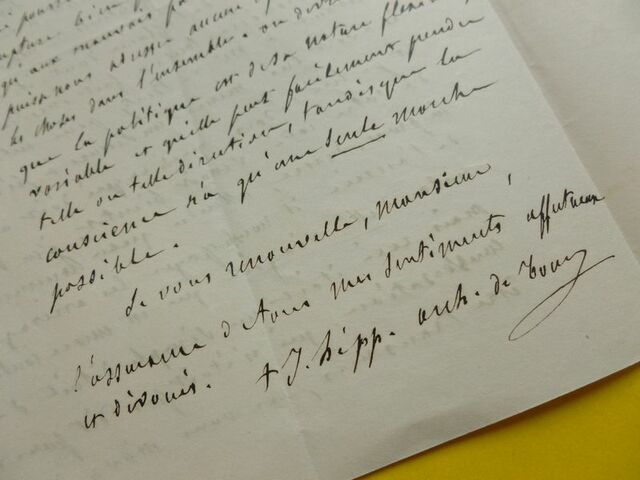 qu'aux mauvais
puissions abuser aucun
les choses dans l'ensemble. on
que la politique est de sa nature flexible,
variable et qu'elle peut facilement prendre
telle ou telle direction, tandis que la
conscience n'a qu'une seule marche
possible.
Je vous renouvelle, monsieur,
l'assurance de tous mes sentiments affectueux
et dévoués. + J. hipp. arch. de Tours